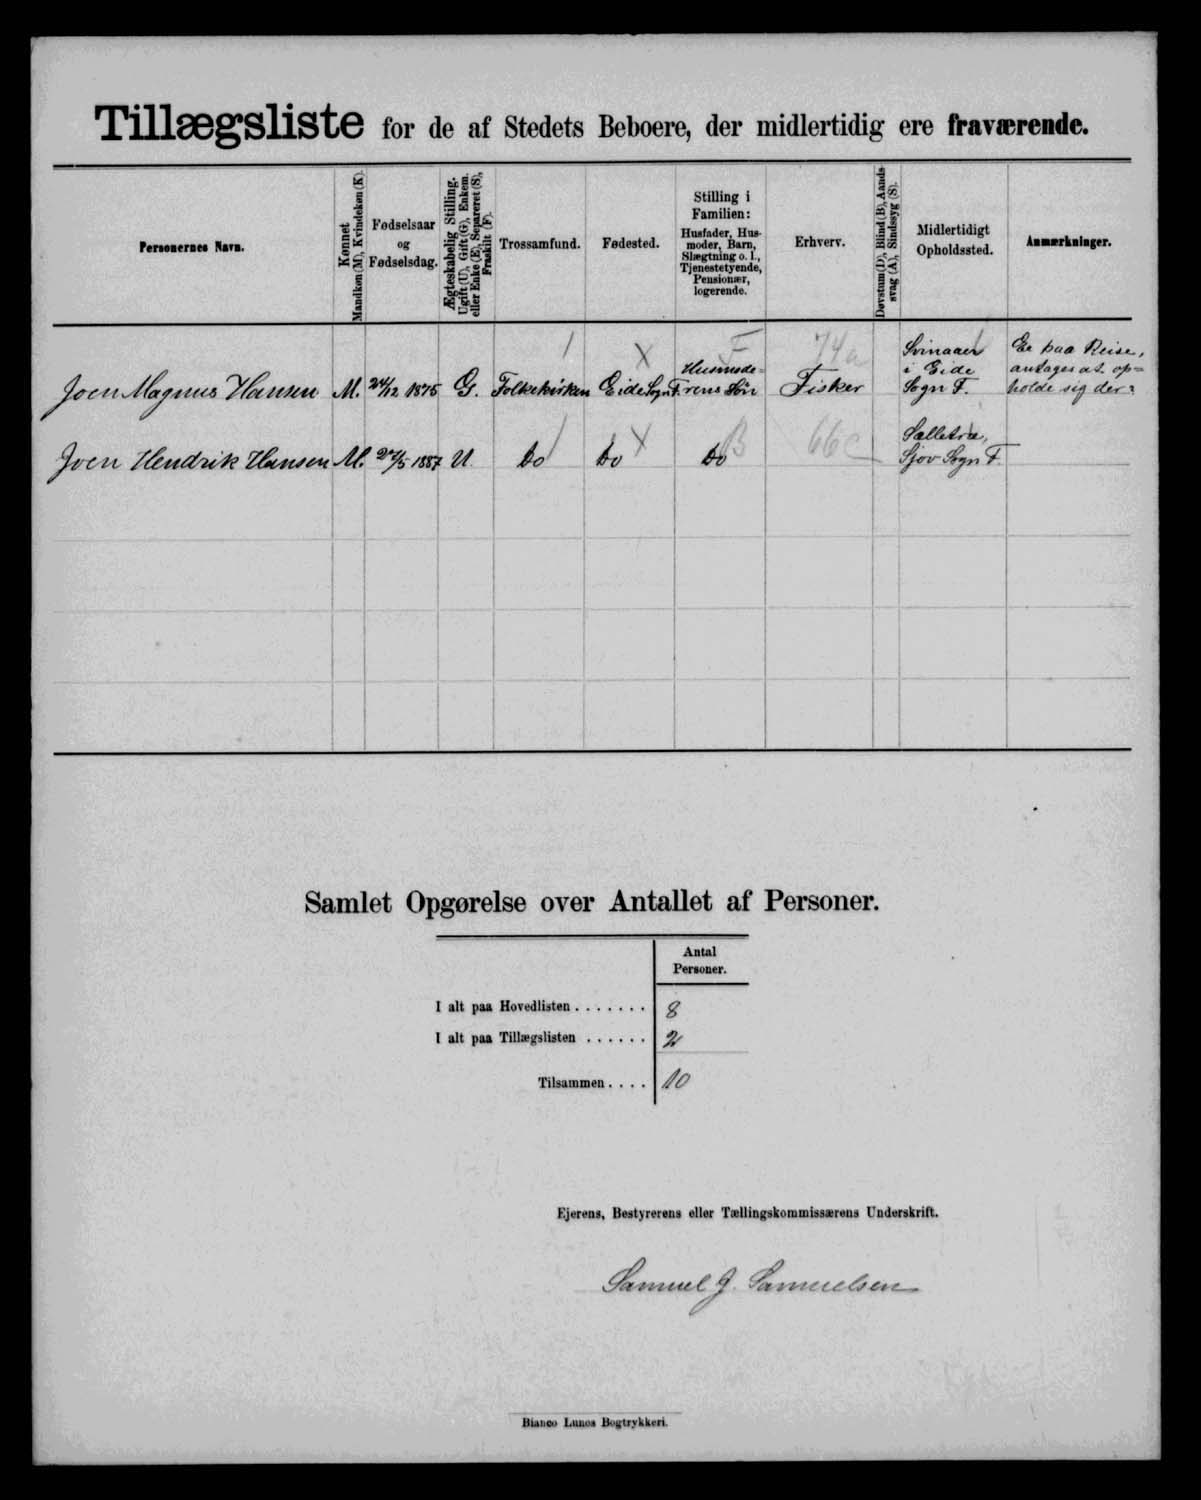 Tillægsliste for de af Stedets Beboere, der midlertidig ere fraværende.
Personernes Navn.
Kønnet
Mandkøn (M), Kvindekøn (K).
Fødselsaar
og
Fødselsdag.
Ægteskabelig Stilling.
Ugift (U), Gift (G), Enkem.
eller Enke (E), Separeret (S),
Fraskilt (F).
Trossamfund.
Fødested.
Stilling i
Familien:
Husfader, Hus-
moder, Barn,
Slægtning o. l.,
Tjenestetyende,
Pensionær,
logerende.
Erhverv.
Døvstum (D), Blind (B), Aands-
svag (A), Sindssyg (S).
Midlertidigt
Opholdssted.
Anmærkninger.
Joen Magnus Hansen M. 24/12 1875 G. Folkekirken Eide Sogn F. Husmode-
rens Søn Fisker Svinaaer
i Eide
Sogn F. Er paa Reise,
antages at op=
holde sig der
1 X F 74a
Joen Hendrik Hansen M. 24/5 1887 U. Do Do Do Sælletræ,
Sjov Sogn F.
1 X B 66c
Samlet Opgørelse over Antallet af Personer.
Antal
Personer.
I alt paa Hovedlisten . . . . . . . 8
I alt paa Tillægslisten . . . . . . 2
Tilsammen . . . . 10
Ejerens, Bestyrerens eller Tællingskommissærens Underskrift.
Samuel J. Samuelsen
Bianco Lunos Bogtrykkeri.